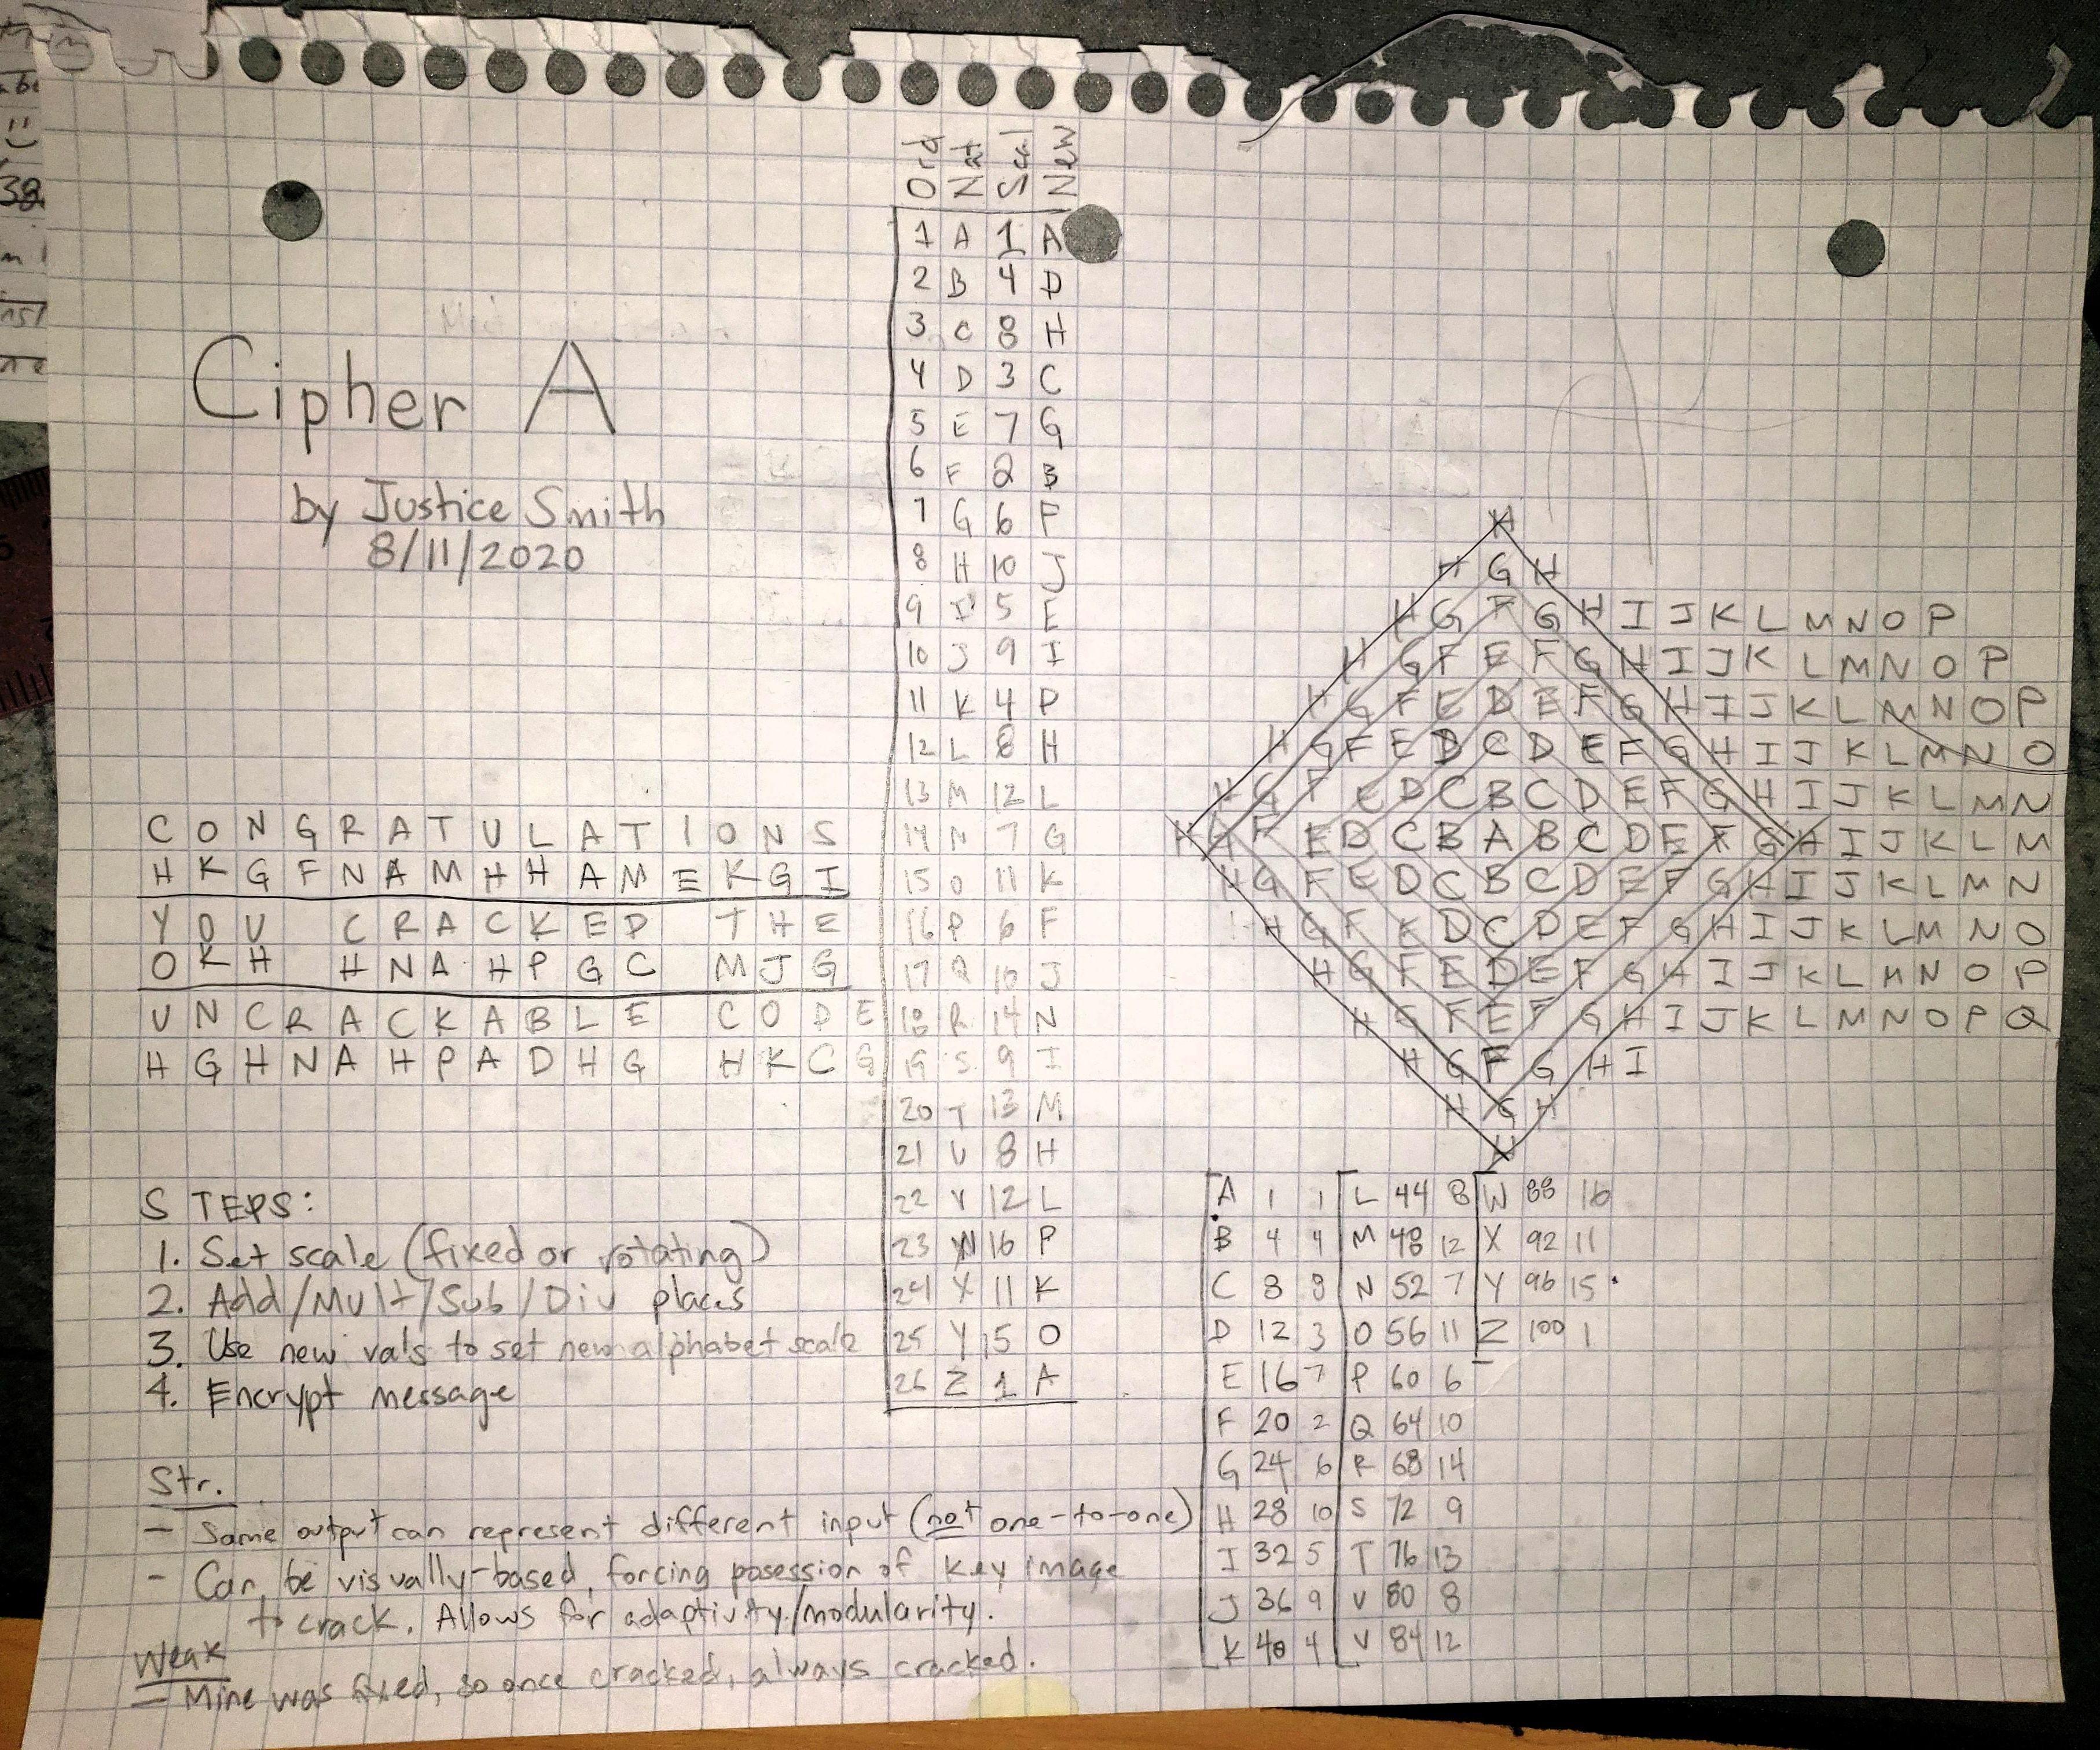 Cipher A
by Justice Smith
8/11/2020
C O N G R A T U L A T I O N S
H K G F N A M H H A M E K G I
Y O U C R A C K E D T H E
O K H H N A H P G C M J G
U N C R A C K A B L E C O D E
H G H N A H P A D H G H K C G
STEPS:
1. Set scale (fixed or rotating)
2. Add/Mult/Sub/Div places
3. Use new vals to set new alphabet scale
4. Encrypt message
Str.
- Same output can represent different input (not one-to-one)
- Can be visually-based, forcing posession of key image
to crack. Allows for adaptivity/modularity.
Weak
- Mine was fixed, so once cracked, always cracked.
Ord Nat Scal New
1 A 1 A
2 B 4 D
3 C 8 H
4 D 3 C
5 E 7 G
6 F 2 B
7 G 6 F
8 H 10 J
9 I 5 E
10 J 9 I
11 K 4 P
12 L 8 H
13 M 12 L
14 N 7 G
15 O 11 K
16 P 6 F
17 Q 10 J
18 R 14 N
19 S 9 I
20 T 13 M
21 U 8 H
22 V 12 L
23 W 16 P
24 X 11 K
25 Y 15 O
26 Z 1 A
H
H G H
H G F G H I J K L M N O P
H G F E F G H I J K L M N O P
H G F E D E F G H I J K L M N O P
H G F E D C D E F G H I J K L M N O
H G F E D C B C D E F G H I J K L M N
H G F E D C B A B C D E F G H I J K L M
H G F E D C B C D E F G H I J K L M N
H G F E D C D E F G H I J K L M N O
H G F E D E F G H I J K L M N O P
H G F E F G H I J K L M N O P Q
H G F G H I
H G H
H
A 1 1 L 44 8 W 88 16
B 4 4 M 48 12 X 92 11
C 8 8 N 52 7 Y 96 15
D 12 3 O 56 11 Z 100 1
E 16 7 P 60 6
F 20 2 Q 64 10
G 24 6 R 68 14
H 28 10 S 72 9
I 32 5 T 76 13
J 36 9 U 80 8
K 40 4 V 84 12